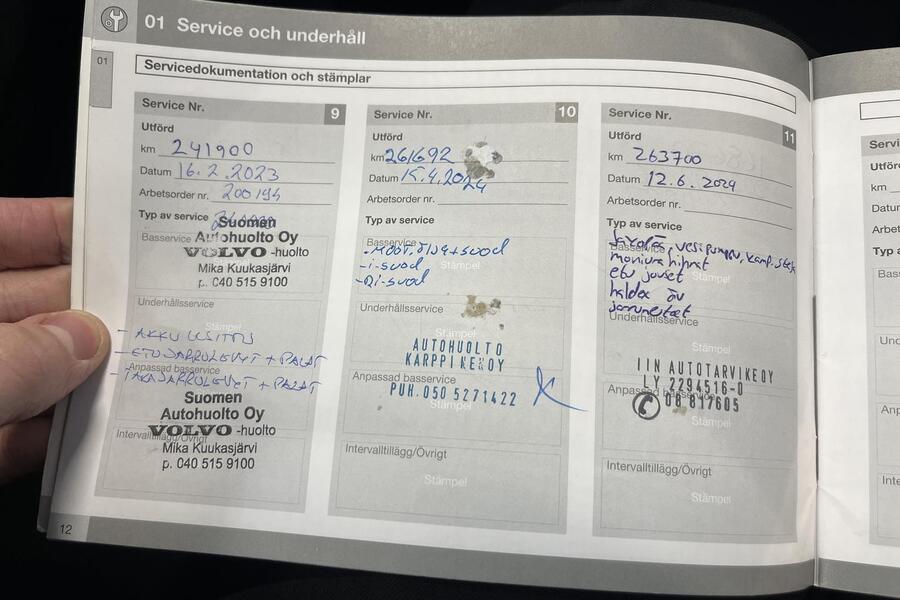 01 Service och underhåll
01
Servicedokumentation och stämplar
Service Nr. 9
Utförd
km 241900
Datum 16.2.2023
Arbetsorder nr. 200194
Typ av service
Suomen
Basservice Autohuolto Oy
VOLVO -huolto
Mika Kuukasjärvi
p. 040 515 9100
Underhållsservice
Stämpel
- AKKU UUSITTU
- ETUJARRULEVYT + PALAT
Anpassad basservice
- TAKAJARRULEVYT + PALAT
Suomen
Autohuolto Oy
Intervalltillägg/Övrigt
VOLVO -huolto
Mika Kuukasjärvi
p. 040 515 9100
12
Service Nr. 10
Utförd
km 261692
Datum 15.4.2024
Arbetsorder nr.
Typ av service
Basservice
- Moot. öljy + suod
Stämpel
- i-suod
- Ri-suod
Underhållsservice
AUTOHUOLTO
KARPPIKEOY
Anpassad basservice
PUH. 050 5271422
Stämpel
Intervalltillägg/Övrigt
Stämpel
Service Nr. 11
Utförd
km 263700
Datum 12.6.2024
Arbetsorder nr.
Typ av service
Basservice
vesipumppu,
moniura hihnat
Stämpel
etu jouset
haldex öv
jarrunesteet
Underhållsservice
Stämpel
IIN AUTOTARVIKE OY
LY 2294516-0
Anpassad basservice
08 817605
Stämpel
Intervalltillägg/Övrigt
Stämpel
km